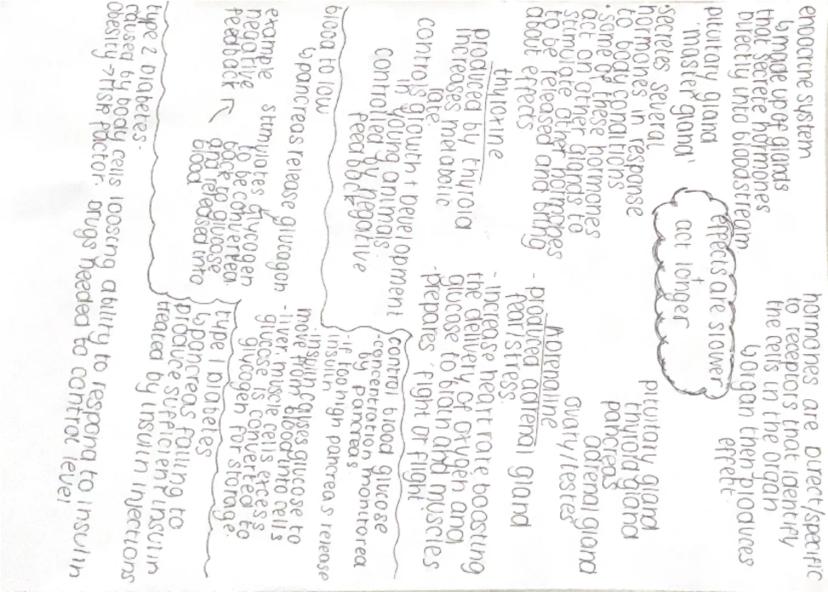 endocrine system
↳ made up of glands
that secrete hormones
directly into bloodstream
pituitary gland
'master gland'
•secretes several
hormones in response
to body conditions
•some of these hormones
act on other glands to
stimulate other hormones
to be released and bring
about effects
effects are slower
+
act longer
hormones are Direct/specific
to receptors that identify
the cells in the organ
↳ organ then produces
effect
pituitary gland
thyroid gland
adrenal gland
pancreas
ovary/testes
thyroxine
produced by thyroid
increases metabolic
rate
controls growth + development
in young animals
controlled by negative
feedback
Adrenaline
- produced adrenal gland
fear stress
- increase heart rate boosting
the delivery of oxygen and
glucose to brain and muscles
- prepares flight or flight
blood to low
↳ pancreas release glucagon
example stimulates glycogen
negative to be converted
feedback ↖ back to glucose
and released into
blood
control blood glucose
•concentration monitored
by pancreas
•if too high pancreas release
insulin
•insulin causes glucose to
move from blood into cells
- liver, muscle cells excess
glucose is converted to
glycogen for storage.
type 1 diabetes
↳ pancreas failing to
produce sufficient insulin
treated by insulin injections
type 2 Diabetes:
caused by body cells loosing ability to respond to insulin
obesity → risk factor. Drugs needed to control level